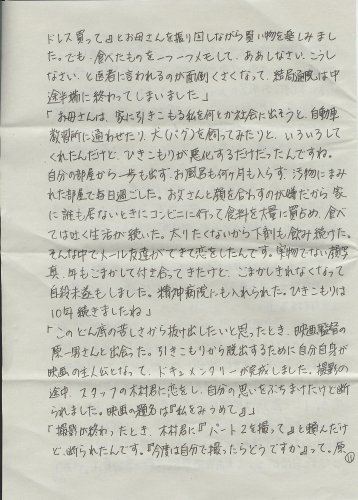 ドレス買って』とお母さんを振り回しながら買い物を楽しみまし
た。でも、食べたものを一つ一つメモして、ああしなさい、こうし
なさい、と医者に言われるのが面倒くさくなって、結局通院は中
途半端に終わってしまいました」
「お母さんは、家に引きこもる私を何とか社会に出そうと、自動車
教習所に通わせたり、犬(パグ)を飼ってみたりと、いろいろして
くれたんだけど、ひきこもりが悪化するだけだったんですね。
自分の部屋から一歩も出ず、お風呂も何ヶ月も入らず、汚物にまみ
れた部屋で毎日過ごした。お父さんと顔を合わすのが嫌だから 家
に誰も居ないときにコンビニに行って食料を大量に買占め、食べ
ては吐く生活が続いた。太りたくないから下剤も飲み続けた。
そんな中でメール友達ができて恋をしたんです。実物でない顔写
真、年もごまかして付き合ってきたけど、ごまかしきれなくなって
自殺未遂もしました。精神病院にも入れられた。ひきこもりは
10年続きましたね」
「このどん底の苦しさから抜け出したいと思ったとき、映画監督の
原一男さんと出会った。引きこもりから脱出するために自分自身が
映画の主人公となって、ドキュメンタリーが完成しました。撮影の
途中、スタッフの木村君に恋をし、自分の思いをぶちまけたけど断
られました。映画の題名は『私をみつめて』」
「撮影が終わったとき、木村君に『パート2を撮って』と頼んだけ
ど、断られたんです。『今度は自分で撮ったらどうですか』って。原